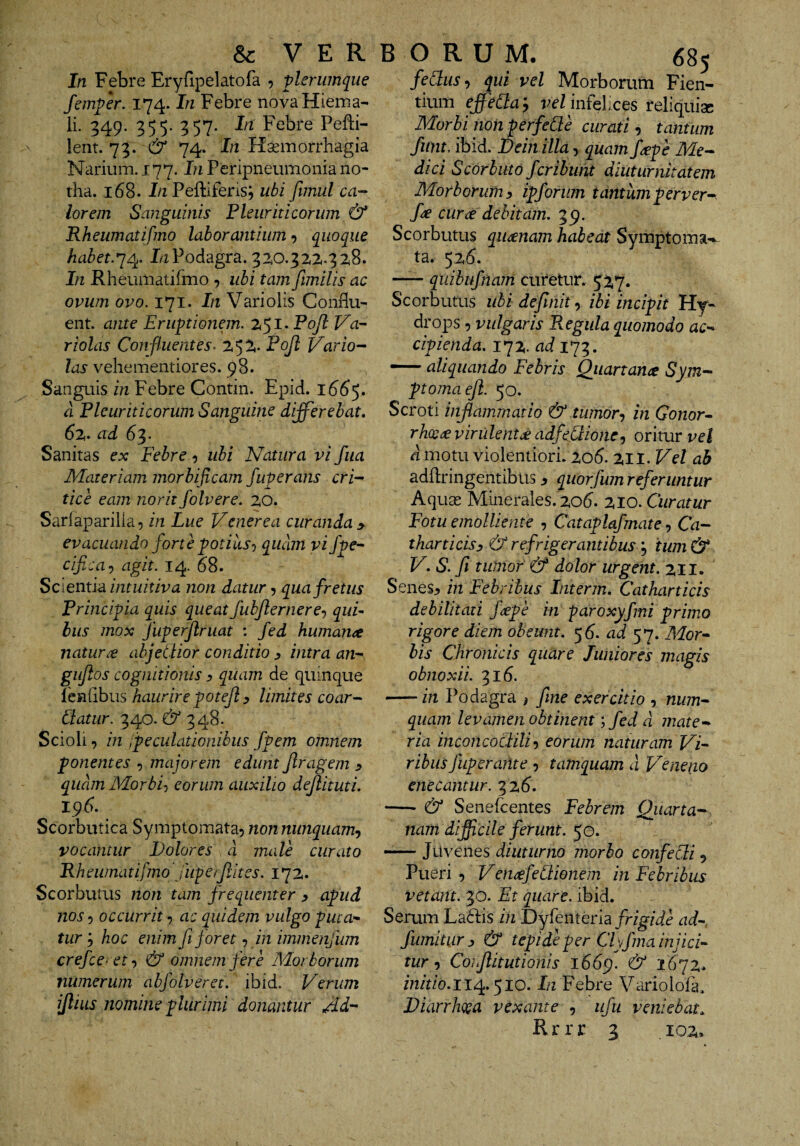 & VERBORUM. 685
In Febre Eryſipelatoſa, plerumque
ſemper. 174. In Febre nova Hiema-
li. 349. 355. 357. In Febre Peſti-
lent. 73. & 74. In Hæmorrhagia
Narium. 177. In Peripneumonia no-
tha. 168. In Peſtiferis; ubi ſimul ca-
lorem Sanguinis Pleuriticorum &
Rheumatiſmo laborantium, quoque
habet. 74. In Podagra. 320. 322. 328.
In Rheumatiſmo, ubi tam ſimilis ac
ovum ovo. 171. In Variolis Conflu-
ent. ante Eruptionem. 251. Poſt Va-
riolas Confluentes. 252. Poſt Vario-
las vehementiores. 98.
Sanguis in Febre Contin. Epid. 1665.
à Pleuriticorum Sanguine differebat.
62. ad 63.
Sanitas ex Febre, ubi Natura vi ſua
Materiam morbificam ſuperans cri-
ticè eam norit ſolvere. 20.
Sarſaparilla, in Lue Venerea curanda,
evacuando fortè potiùs, quàm vi ſpe-
cifica, agit. 14. 68.
Scientia intuitiva non datur, qua fretus
Principia quis queat ſubſternere, qui-
bus mox ſuperſtruat : ſed humanæ
naturæ abjectior conditio, intra an-
guſtos cognitionis, quam de quinque
ſenſibus haurire poteſt, limites coar-
ctatur. 340. & 348.
Scioli, in ſpeculationibus ſpem omnem
ponentes, majorem edunt ſtragem,
quàm Morbi, eorum auxilio deſtituti.
196.
Scorbutica Symptomata, non nunquam,
vocantur Dolores à malè curato
Rheumatiſmo ſuperſtites. 172.
Scorbutus non tam frequenter, apud
nos, occurrit, ac quidem vulgo puta-
tur; hoc enim ſi foret, in immenſum
creſceret, & omnem ferè Morborum
numerum abſolveret. ibid. Verum
iſtius nomine plurimi donantur Ad-
fectus, qui vel Morborum Fien-
tium effecta; vel infelices reliquiæ
Morbi non perfectè curati, tantum
ſunt. ibid. Dein illa, quam ſæpè Me-
dici Scorbuto ſcribunt diuturnitatem
Morborum, ipſorum tantùm perver-
ſæ curæ debitam. 39.
Scorbutus quænam habeat Symptoma-
ta. 526.
— quibuſnam curetur. 527.
Scorbutus ubi definit, ibi incipit Hy-
drops, vulgaris Regula quomodo ac-
cipienda. 172. ad 173.
— aliquando Febris Quartanæ Sym-
ptoma eſt. 50.
Scroti inflammatio & tumor, in Gonor-
rhœæ virulentæ adfectione, oritur vel
à motu violentiori. 206. 211. Vel ab
adſtringentibus, quorſum referuntur
Aquæ Minerales. 206. 210. Curatur
Fotu emolliente, Cataplaſmate, Ca-
tharticis, & refrigerantibus; tum &
V. S. ſi tumor & dolor urgent. 211.
Senes, in Febribus Interm. Catharticis
debilitati ſæpè in paroxyſmi primo
rigore diem obeunt. 56. ad 57. Mor-
bis Chronicis quare Juniores magis
obnoxii. 316.
— in Podagra, ſine exercitio, num-
quam levamen obtinent; ſed à mate-
ria inconcoctili, eorum naturam Vi-
ribus ſuperante, tamquam à Veneno
enecantur. 326.
— & Seneſcentes Febrem Quarta-
nam difficile ferunt. 50.
— Juvenes diuturno morbo confecti,
Pueri, Venæſectionem in Febribus
vetant. 30. Et quare. ibid.
Serum Lactis in Dyſenteria frigidè ad-
ſumitur, & tepidè per Clyſma injici-
tur, Conſtitutionis 1669. & 1672.
initio. 114. 510. In Febre Varioloſa.
Diarrhœa vexante, uſu veniebat.
Rrrr 3 102.